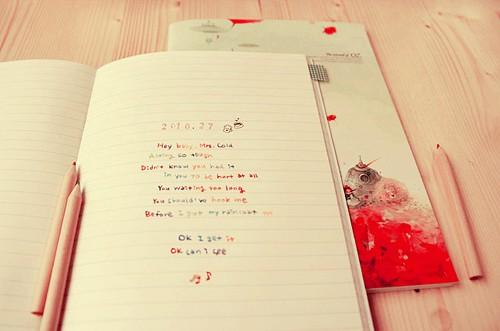 2010.27
Hey baby, Mrs. Cold
Acting so tough
Didn't know you had it
In you to be hurt at all
You waiting too long
You should've hook me
Before I put my raincoat on
OK I get it
OK can I see